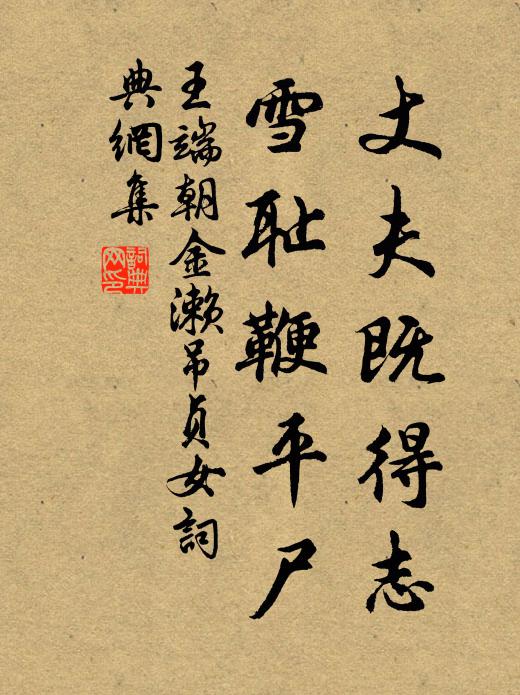 丈夫既得志
雪耻鞭平尸
王端朝金濑吊贞女詞
典網集
詞典網印